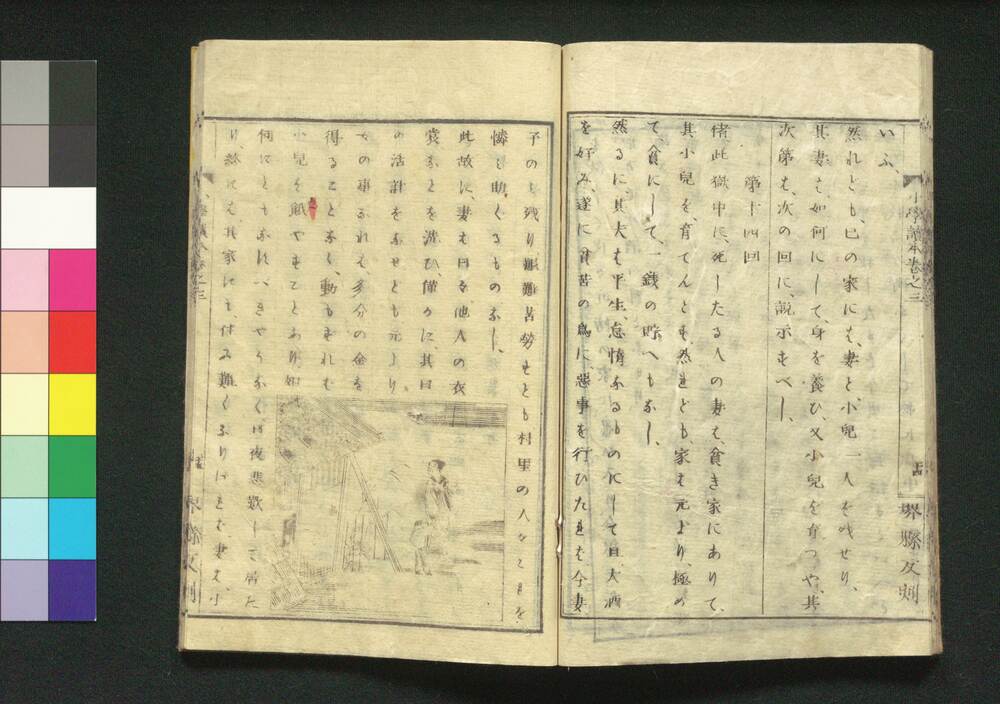 小學讀本卷之三
堺縣反刻
いふ、
然れども、己の家にも、妻と、小兒一人を残せり、
其妻も、如何にして、身を養ひ、又小兒を育つや、其
次第も、次の回に、説示すべし、
第十四回
偖、此獄中に、死したる人の妻も、貧き家にありて、
其小兒を、育てんとす、然れども、家も元より、極め
て、貧にして、一銭の貯へもなし、
然るに、其夫も平生、怠惰なるものにして且、大酒
を好み、遂に貧苦の爲に、惡事を行ひたれば今妻
子のも残り艱難苦勞せとも村里の人々これを
憐み助くるものなし、
此故に、妻も日々他人の衣
裳なとを洗ひ、僅かに、其日
の活計をなせとも元より
女の事なれも、多分の金を
得ることなく、動もすれも
小兒も飢
何にともなれ
日夜悲歎して居た
り、其家にも
難くなりければ、妻も小
堺縣反刻